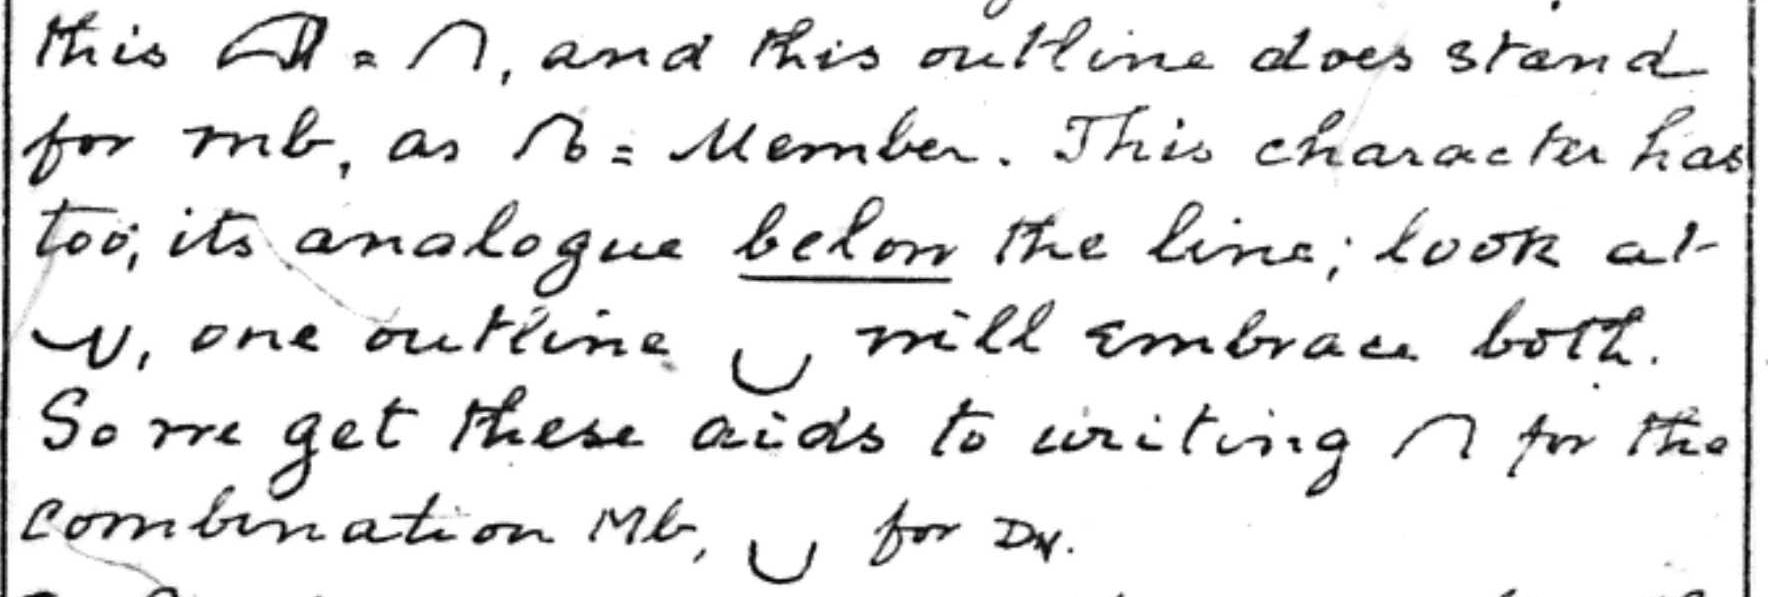 this = , and this outline does stand
for mb, as = Member. This character has
too, its analogue below the line; look at
, one outline will embrace both.
So we get these aids to writing for the
combination Mb, for